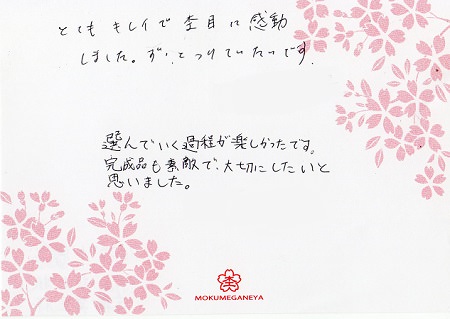 とても キレイで 杢目に 感動
しました。ずっとつけていたいです。
選んでいく過程が楽しかったです。
完成品も素敵で、大切にしたいと
思いました。
MOKUMEGANEYA